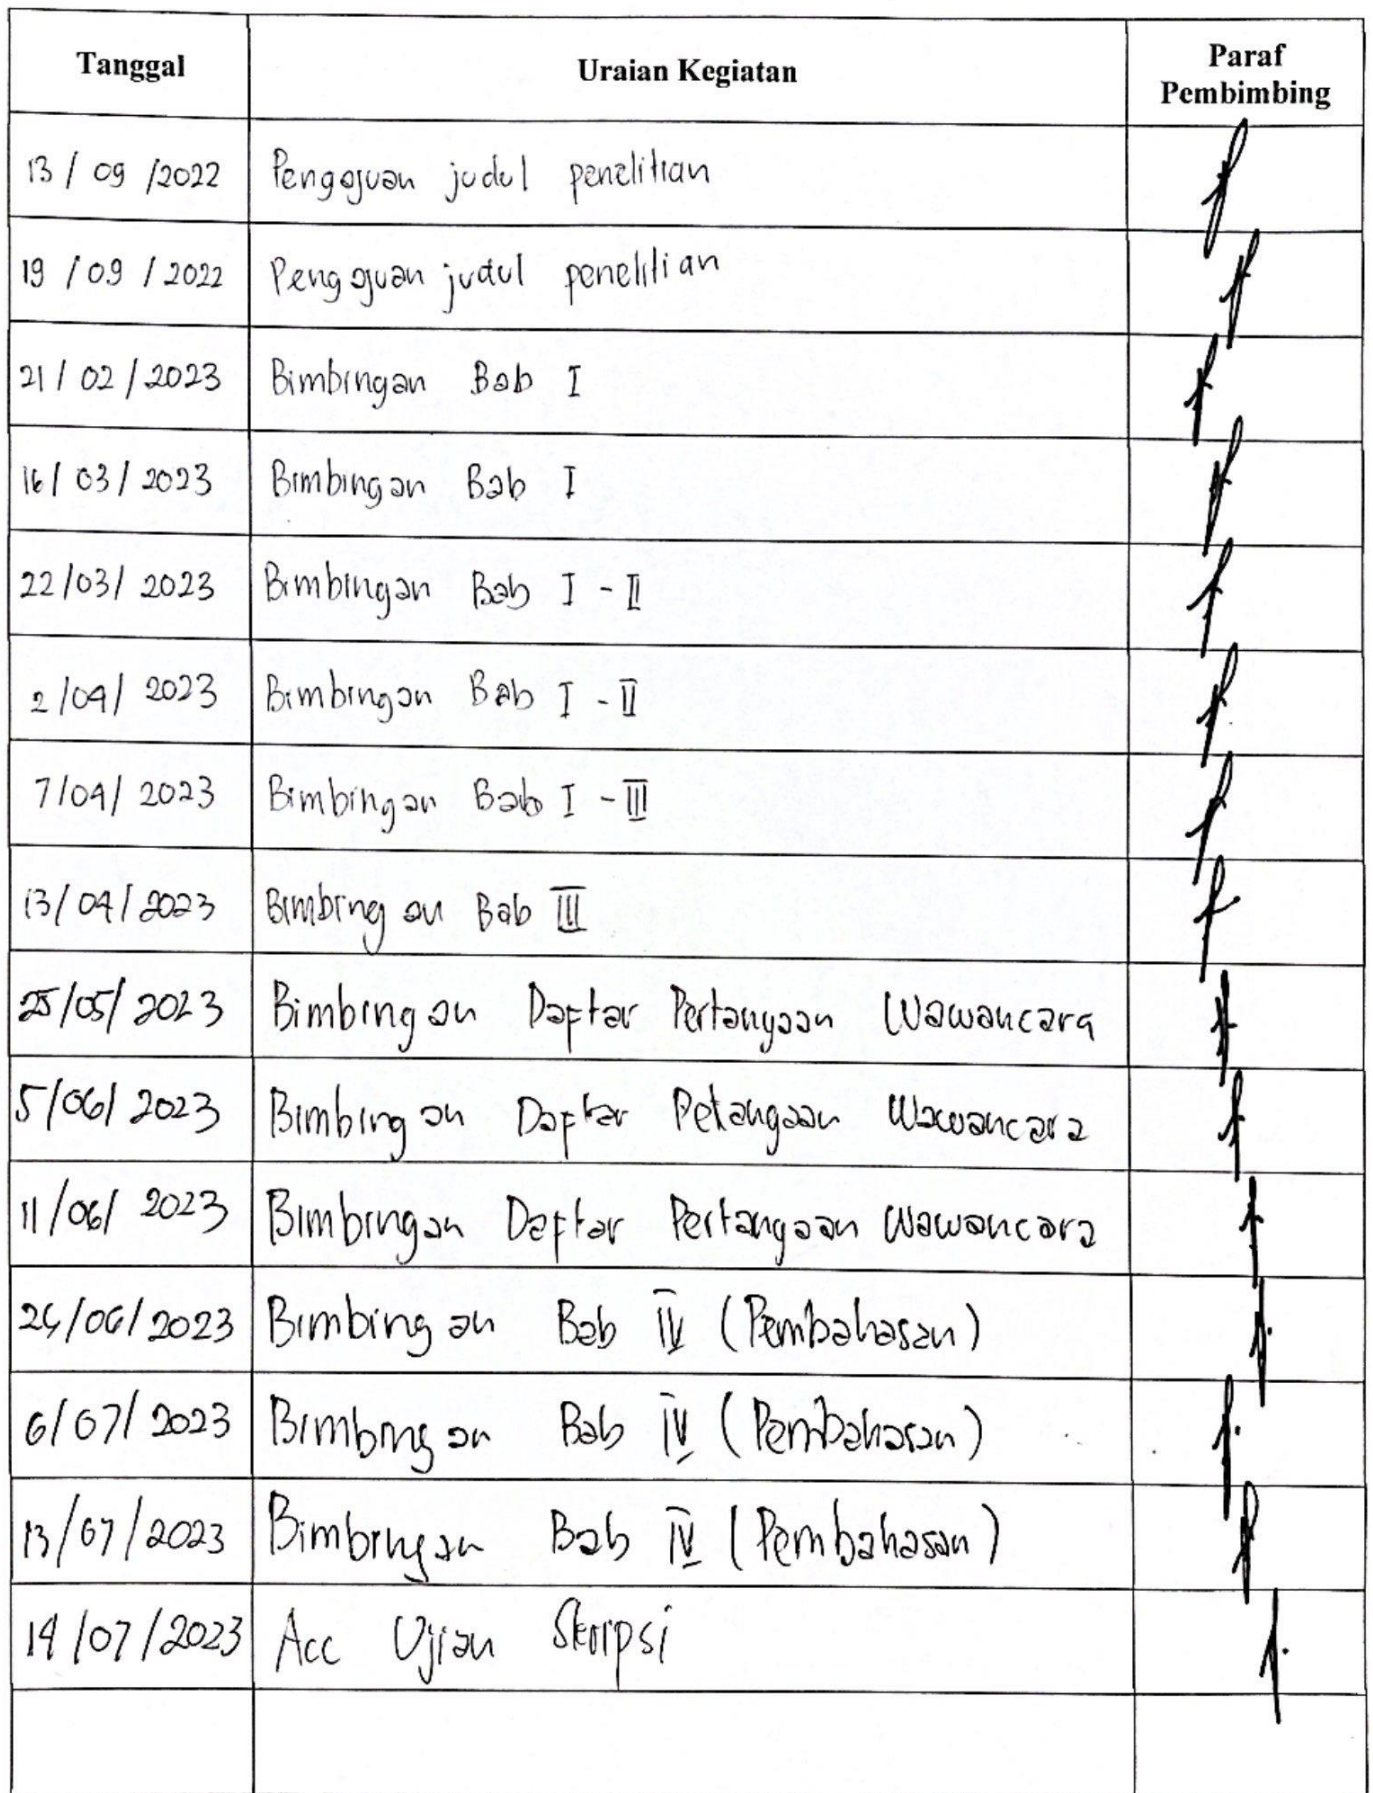 Tanggal Uraian Kegiatan Paraf
Pembimbing
13 / 09 /2022 Pengajuan judul penelitian
19 / 09 / 2022 Pengajuan judul penelitian
21 / 02 / 2023 Bimbingan Bab I
16 / 03 / 2023 Bimbingan Bab I
22/03/ 2023 Bimbingan Bab I - II
2 /04/ 2023 Bimbingan Bab I - II
7/04/ 2023 Bimbingan Bab I - III
13/04/2023 Bimbingan Bab III
25/05/ 2023 Bimbingan Daftar Pertanyaan Wawancara
5/06/ 2023 Bimbingan Daftar Petangaan Wawancara
11/06/ 2023 Bimbingan Daftar Pertangaan Wawancara
/06/2023 Bimbingan Bab IV (Pembahasan)
6/07/ 2023 Bimbingan Bab IV (Pembahasan)
13/07/2023 Bimbingan Bab IV (Pembahasan)
14/07/2023 Acc Ujian Skripsi